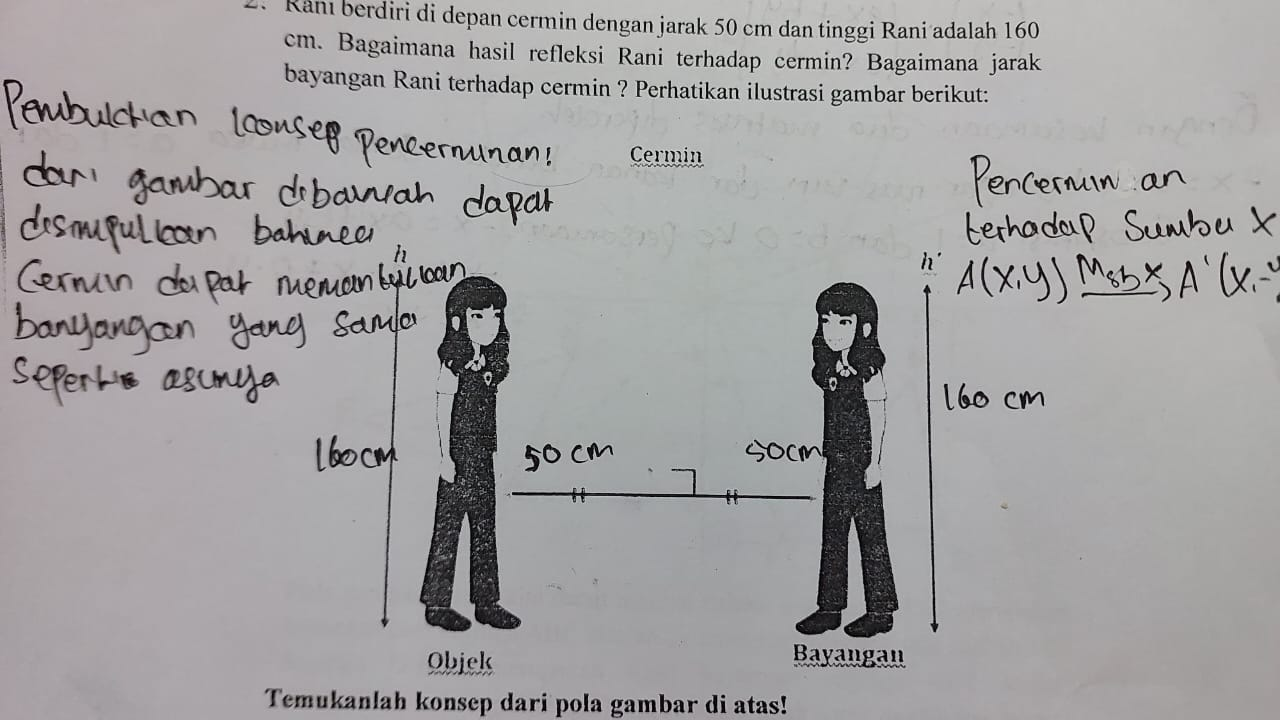 2. Rani berdiri di depan cermin dengan jarak 50 cm dan tinggi Rani adalah 160
cm. Bagaimana hasil refleksi Rani terhadap cermin? Bagaimana jarak
bayangan Rani terhadap cermin ? Perhatikan ilustrasi gambar berikut:
Pembuktian konsep Pencerminan!
dari gambar dibawah dapat
disimpulkan bahwa
Cermin dapat memantulkan
banyangan yang sama
seperti aslinya
Cermin
Pencerminan
terhadap Sumbu X
A(x,y) Msbx, A'(x,-y
h
h'
160cm
50 cm
50cm
160 cm
Objek
Bayangan
Temukanlah konsep dari pola gambar di atas!